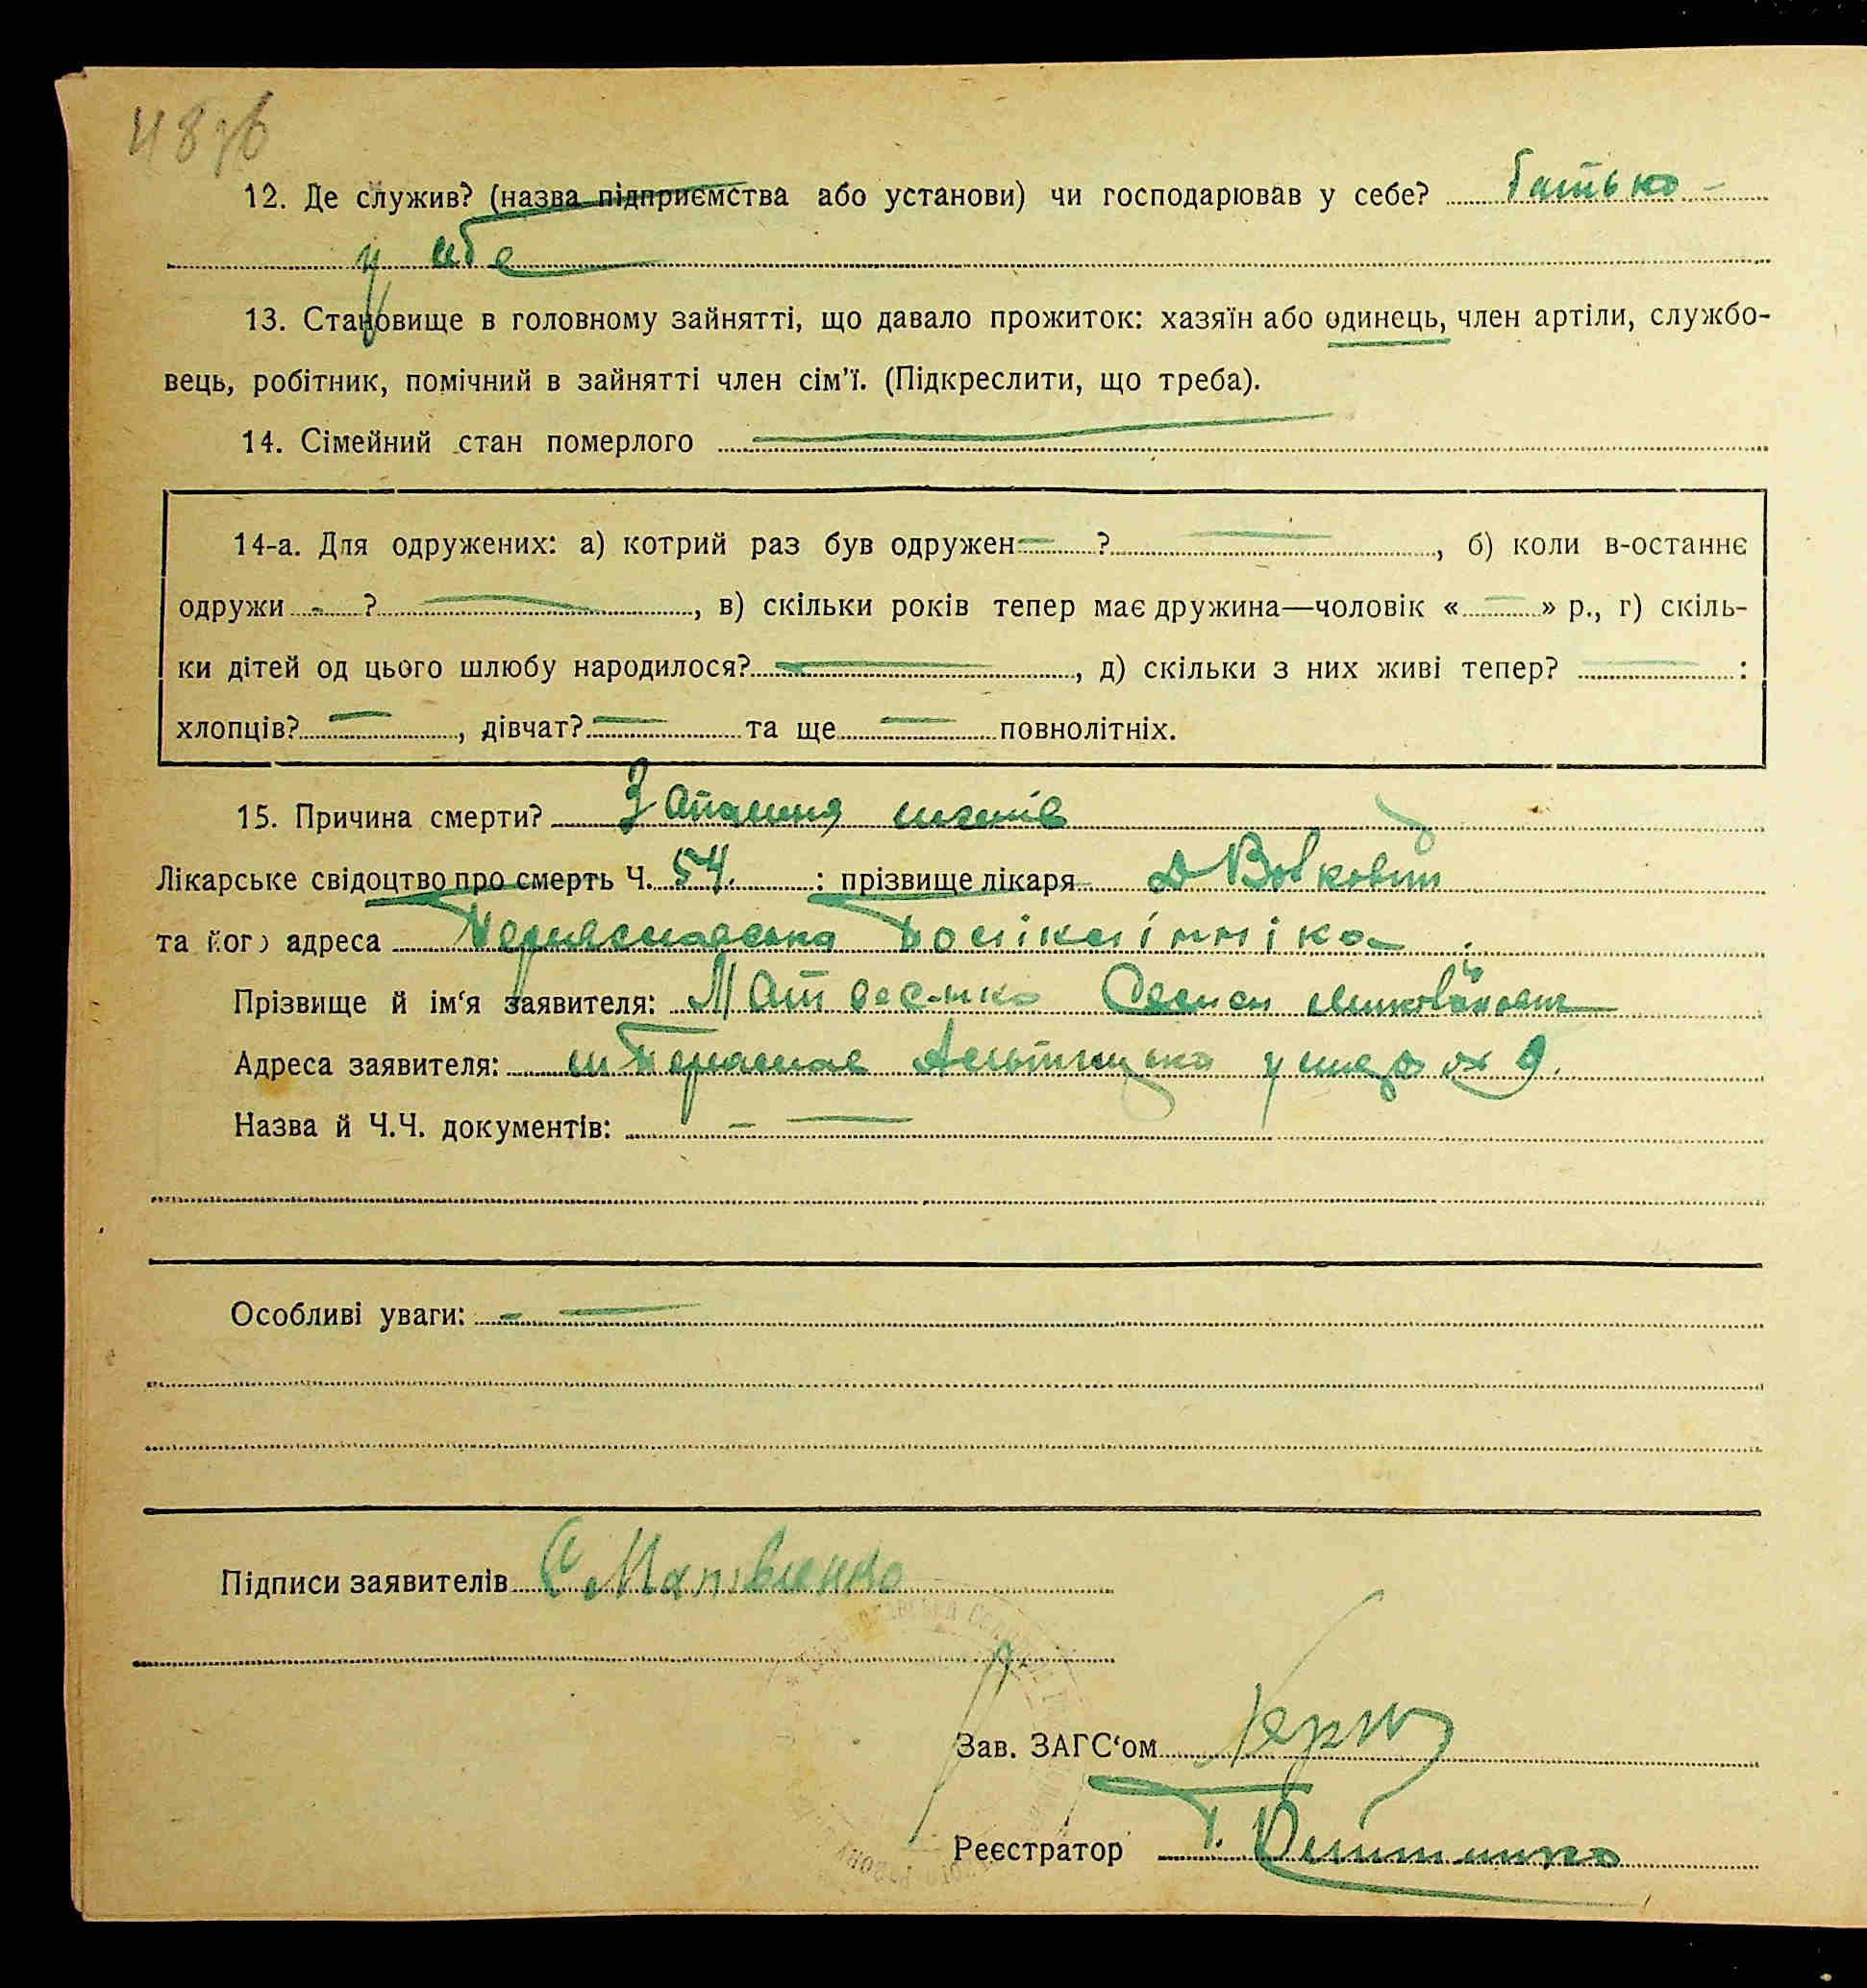 48 зв
12. Де служив? (назва підприємства або установи) чи господарював у себе? батько –
у себе
13. Становище в головному зайнятті, що давало прожиток: хазяїн або одинець, член артіли, службо-
вець, робітник, помічний в зайнятті член сім’ї. (Підкреслити, що треба).
14. Сімейний стан померлого
14-а. Для одружених: а) котрий раз був одружен ? , б) коли в-останнє
одружи ? , в) скільки років тепер має дружина—чоловік « » р., г) скіль-
ки дітей од цього шлюбу народилося? , д) скільки з них живі тепер? :
хлопців? , дівчат? та ще повнолітніх.
15. Причина смерти? Запалення легенів
Лікарське свідоцтво про смерть Ч. 54. : прізвище лікаря Вовкович
та його адреса Переяславська Поліклініка
Прізвище й ім‘я заявителя: Матвеенко Семен
Адреса заявителя: м Переяслав 9.
Назва й Ч.Ч. документів: –
Особливі уваги: –
Підписи заявителів С Матвієнко
Зав. ЗАГС‘ом
Реєстратор Г.